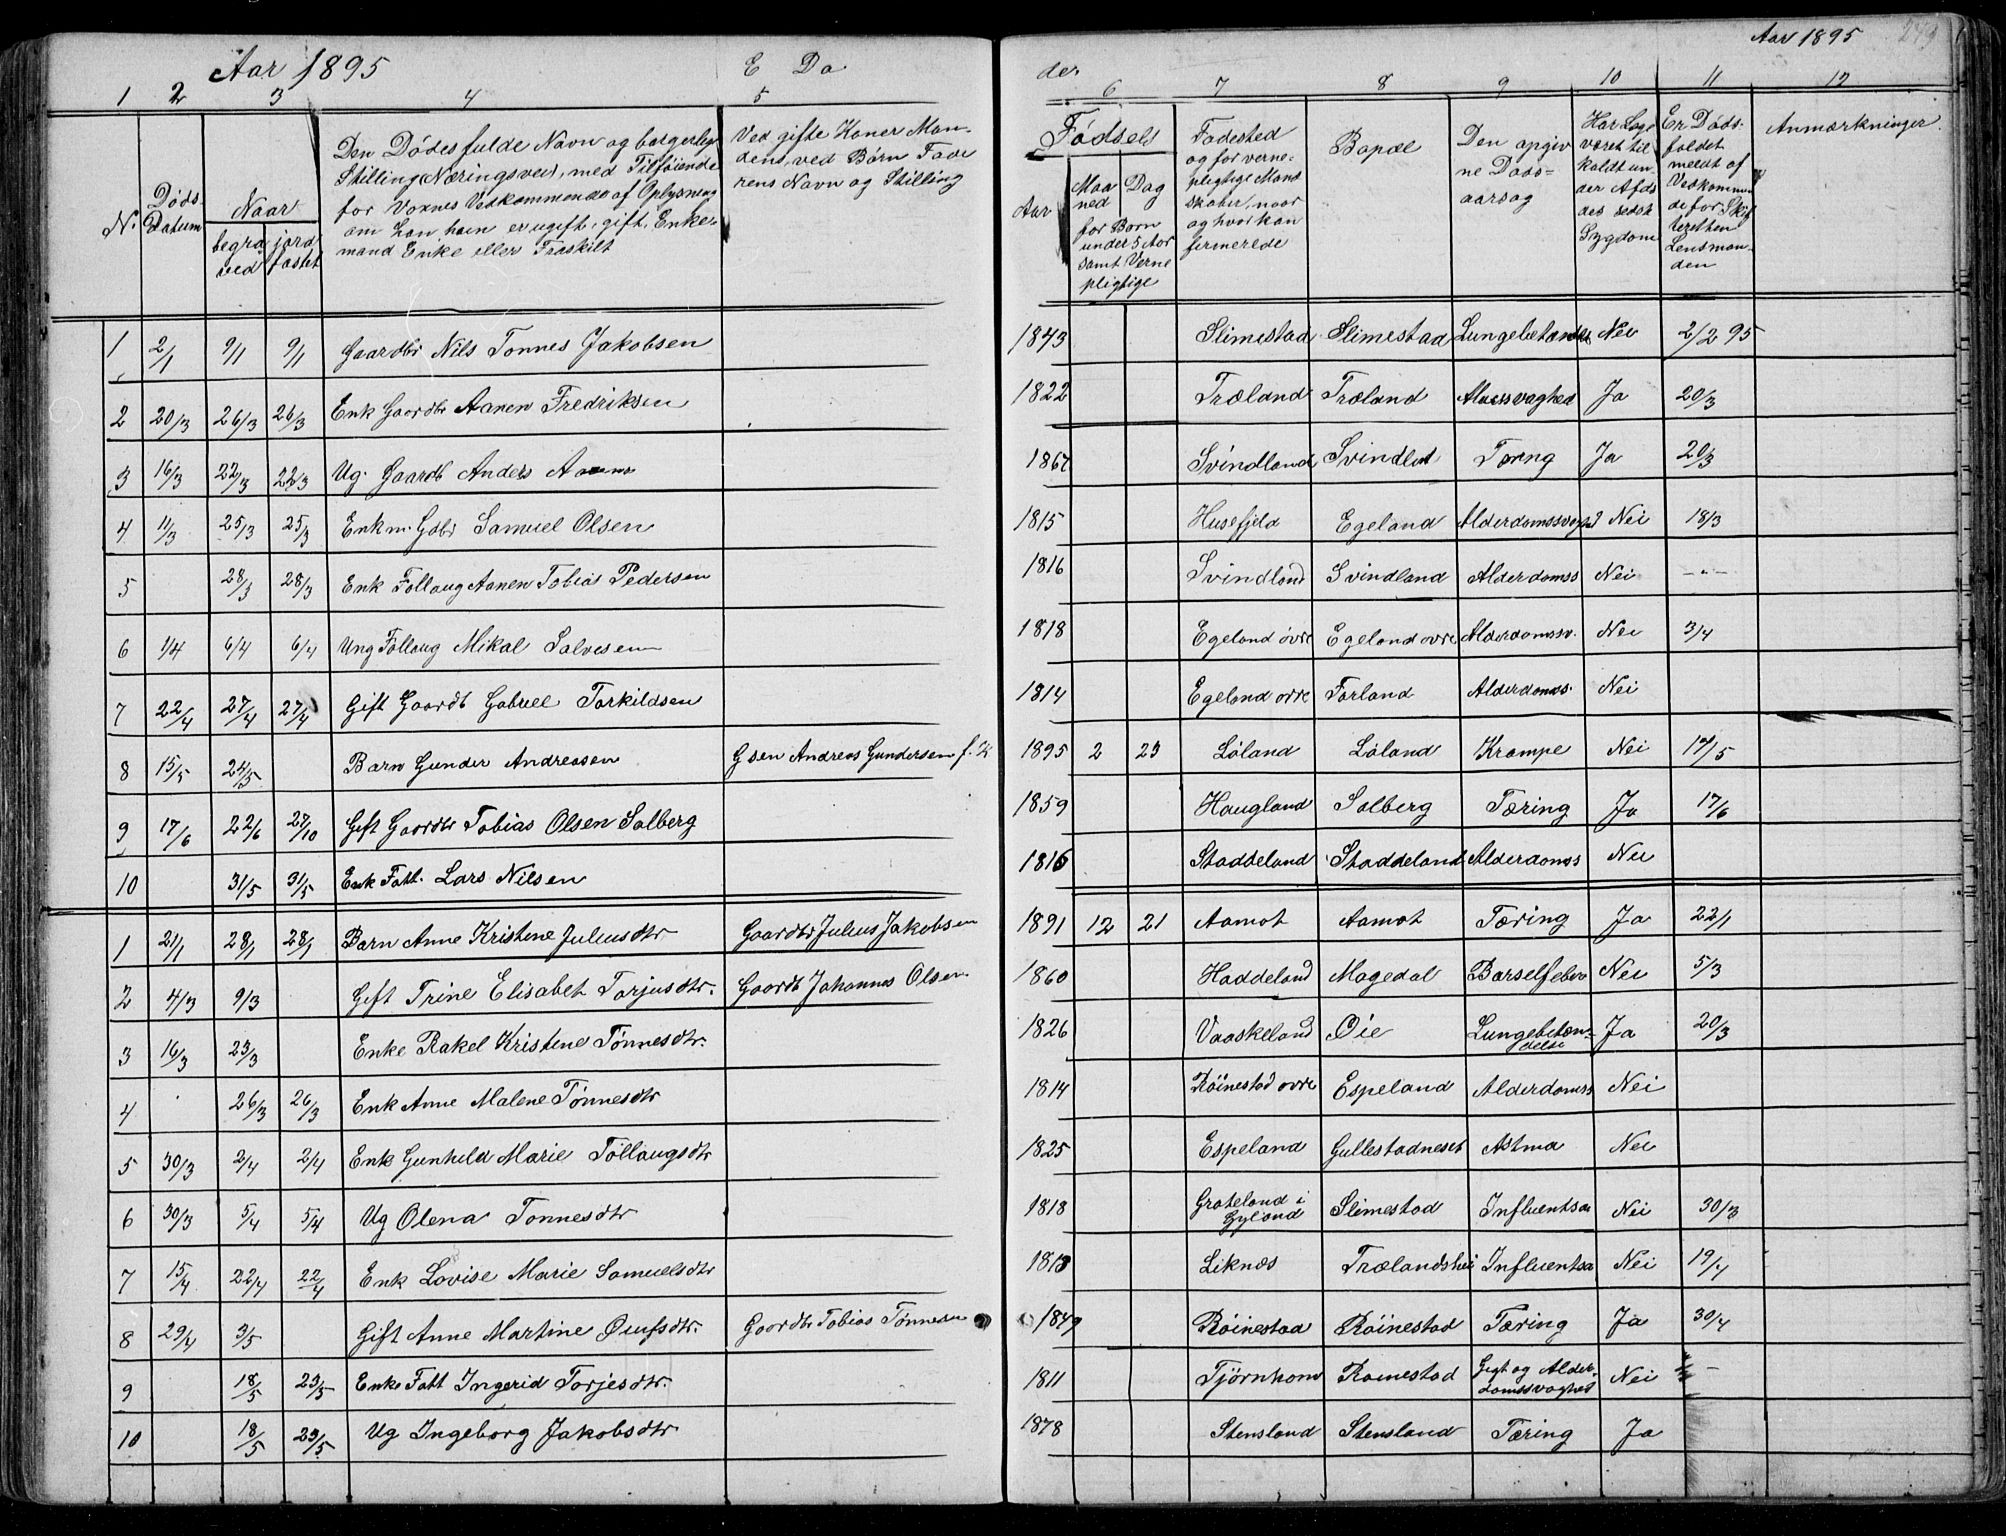 Aar 1895 E Dø
der Aar 1895
1 2 3 4 5 6 7 8 9 10 11 12
N. Døds-Datum Naar begraved jordfæstet
Den Dødes fulde Navn og borgerlige
Stilling (Næringsvei), med Tilføiende
for Voxnes Vedkommende af Oplysning
om han hun er ugift, gift, Enke-
mand Enke eller Fraskilt
Ved gifte Koner Man-
dens, ved Børn Fade
rens Navn og Stilling
Fødsels
Aar
Maaned Dag
for Børn
under 5 Aar
samt Verne
pligtige
Fødested
og for verne-
pligtige Mand
skaber, naar
og hvor kon
firmerede
Bopæl
Den opgiv
ne Døds-
aarsag
Har Læge
været til
kaldt un
der Afdø
des sidste
Sygdom
Er Døds-
faldet
meldt af
Vedkommen
de for Skif
teretten
Lensman-
den
Anmærkninger
1 2/1 9/1 9/1 Gaardbr Nils Tønnes Jakobsen 1843 Slimestad Slimestad Nei 2/2 95
2 20/3 26/3 26/3 Enk Gaardbr Aanen Fredriksen 1822 Træland Træland Ja 20/3
3 16/3 22/3 22/3 Ug. Gaardb Anders 1867 Svindland Tæring Ja 20/3
4 11/3 25/3 25/3 Enkm. Gdbr Samuel Olsen 1815 Husefjeld Egeland Nei 18/3
5 28/3 28/3 Enk Føllaug Aanen Tobias Pedersen 1816 Svindland Svindland Alderdomss Nei -"-
6 1/4 6/4 6/4 Ung Føllaug Mikal Salvesen 1818 Egeland øvre Egeland øvre Alderdomssv. Nei 3/4
7 22/4 27/4 27/4 Gift Gaardb Gabriel Torkildsen 1814 Egeland øvre Førland Alderdomss. Nei
8 15/5 24/5 Barn Gunder Andreasen Gsen Andreas Gundersen f. 1895 2 23 Løland Løland Krampe Nei 17/5
9 17/6 22/6 27/10 Gift Gaardbr Tobias Olsen Salberg 1859 Haugland Salberg Tæring Ja 17/6
10 31/5 31/5 Enk Fatt. Lars Nilsen 1816 Staddeland Staddeland Alderdomss Nei
1 21/1 28/1 28/1 Barn Anne Kristene Juliusdtr Gaardbr Julius Jakobsen 1891 12 21 Aamot Aamot Tæring Ja 22/1
2 4/3 9/3 Gift Trine Elisabet Torjusdtr. Gaardb Johannes Olsen 1860 Haddeland Mogedal Barselfeber Nei 5/3
3 16/3 23/3 Enke Rakel Kristene Tønnesdtr. 1826 Vaaskeland Øie Lungebetæn-delse Ja 20/3
4 26/3 26/3 Enk Anne Malene Tønnesdtr 1814 Røinestad øvre Espeland Alderdomss Nei
5 30/3 2/4 2/4 Enk Gunhild Marie Tollaugsdtr 1825 Espeland Gullestadneset Astma Nei
6 30/3 5/4 5/4 Ug Olena Tønnesdtr 1818 Grøteland i Gyland Slimestad Influentsa Nei 30/3
7 15/4 22/4 22/4 Enk Lovise Marie Samuelsdtr 1813 Liknæs Trælandshei Influentsa Nei 19/4
8 29/4 3/5 Gift Anne Martine Olufsdtr. Gaardbr Tobias Tønnesen 1849 Røinestad Røinestad Tæring Ja 30/4
9 18/5 23/5 Enke Fatt Ingerid Torjesdtr. 1811 Tjørnhom Roinestad Gigt og Alder-domssvaghet Nei
10 18/5 23/5 Ug Ingeborg Jakobsdtr 1878 Stensland Stensland Tæring Ja